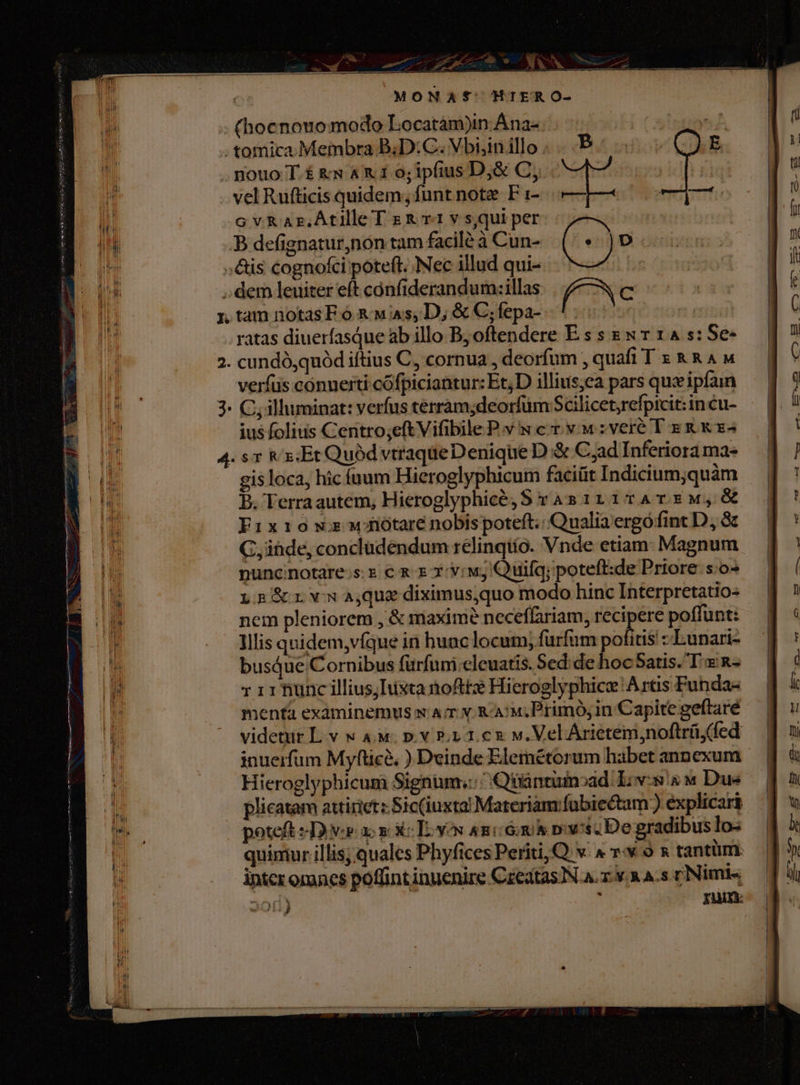 MONAS HIERO-
(hoc nouo modo Locatam) in Ana-
tomica Membra B.D.C. Vbi, in illo
nouo TÉRNARIO, ipsius D, & C,
vel Rusticis quidem, sunt notæ FI-
GVRAE, At ille TERTIVS, qui per
B designatur, non tam facilè à Cun-
ctis cognosci potest. Nec illud qui-
dem leuiter est considerandum: illas
1. tam notas FÓRMAS, D, & C, sepa-
ratas diuersasque ab illo B, ostendere ESSENTIAS: Se-
2. cundò, quòd istius C, cornua, deorsum, quasi TERRAM
versus conuerti cõspiciantur: Et, D illius, ea pars quæ ipsam
3. C, illuminat: versus terram, deorsum Scilicet, respicit: in cu-
ius solius Centro, est Visibile PVNCTVM: verè TERRE-
4. STRE. Et Quòd vtraque Denique D & C, ad Inferiora ma-
gis loca, hic suum Hieroglyphicum faciũt Indicium, quàm
B. Terra autem, Hieroglyphicè, STABILITATEM, &
FIXIÓNEM nótare nobis potest. Qualia ergo sint D, &
C, inde, concludendum relinquo. Vnde etiam Magnum
nunc notare SECRETVM, Quisq; potest: de Priore SO-
LE & LVNA, quæ diximus, quo modo hinc Interpretatio-
nem pleniorem, & maximè necessariam, recipere possunt:
Illis quidem, vsque in hunc locum, sursum positis: Lunari-
busque Cornibus sursum eleuatis. Sed de hoc Satis. TER-
TII nunc illius, Iuxta nostræ Hieroglyphicæ Artis Funda-
menta examinemus NATVRAM. Primò, in Capite gestare
videtur LVNAM DVPLICEM. Vel Arietem, nostrũ, (sed
inuersum Mysticè.) Deinde Elemẽtorum habet annexum
Hieroglyphicum Signum. Quantum ad LVNAM Du-
plicatam attinet: Sic (iuxta Materiam subiectam) explicari
potest: DVPLEX LVNAE GRADVS. De gradibus lo-
quimur illis, quales Physices Periti, QVATVÓR tantùm
inter omnes possint inuenire Creatas NATVRAS: Nimi-
rum
B
E
D
C